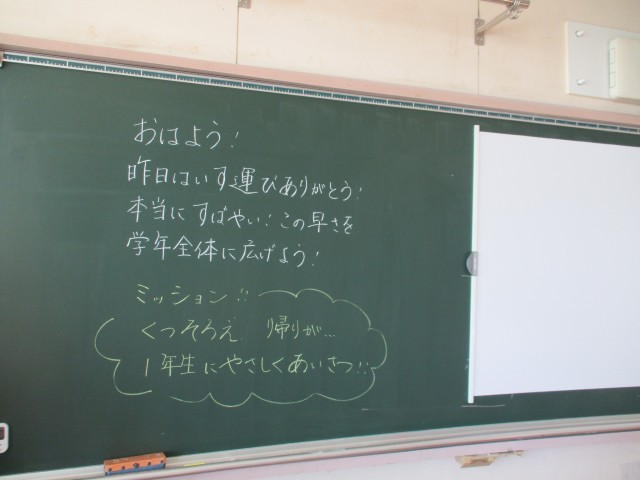 おはよう!
昨日はいす運びありがとう!
本当にすばやい!この早さを
学年全体に広げよう!
ミッション!!
くつそろえ 帰りが...
1年生にやさしくあいさつ!!